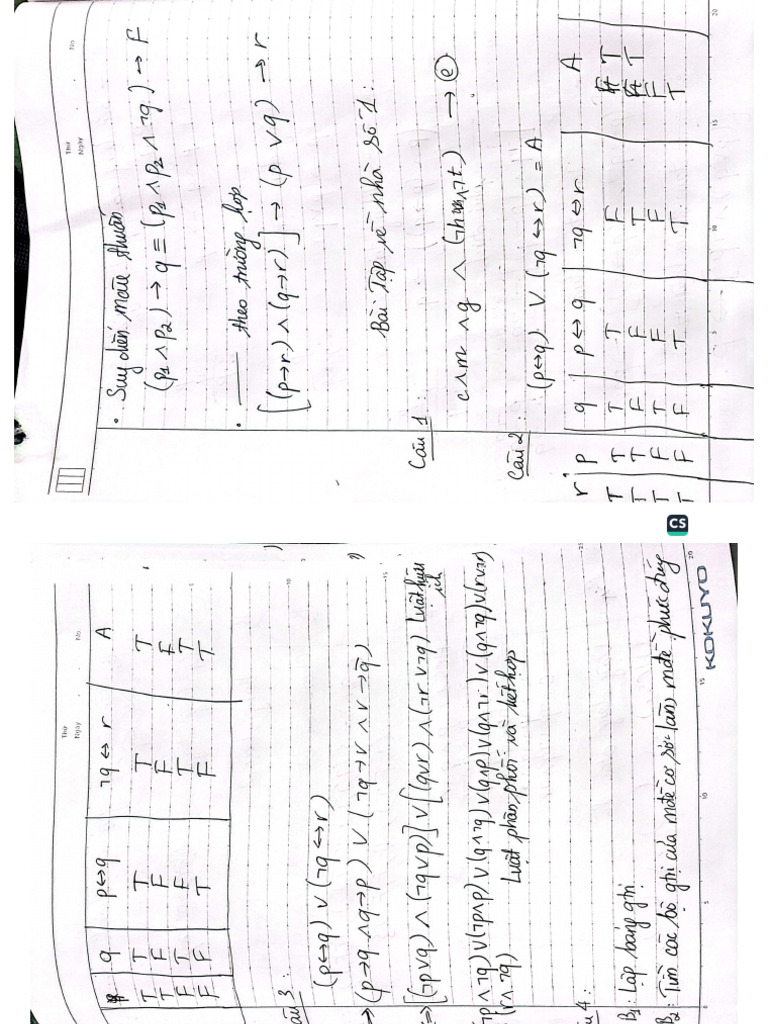 Thứ
Ngày
No
• Suy diễn mâu thuẫn
(p₁ ∧ p₂) → q ≡ (p₁ ∧ p₂ ∧ ¬q) → F
• —— theo trường hợp
[(p→r) ∧ (q→r)] → (p ∨ q) → r
Bài tập về nhà số 1:
Câu 1:
c∧m ∧ g ∧ ∧¬t) → ⓔ
Câu 2:
(p↔q) ∨ (¬q ↔ r) = A
r p q p↔q ¬q↔r A
T T T T F T
T T F F T T
T F T F F F
T F F T T T
CS
Thứ
Ngày
No
q p↔q ¬q↔r A
T T T T T
T F F F F
F T F T T
F F T F T
3:
(p↔q) ∨ (¬q ↔ r)
(p→q ∧ q→p) ∨ (¬q→r ∧ r→q̄)
[(¬p∨q) ∧ (¬q∨p)] ∨ [(q∨r) ∧ (¬r ∨ ¬q) Luật hữu
ích
¬p∧¬q) ∨ (¬p∧p) ∨ (q∧¬q) ∨ (q∧p) ∨ (q∧¬r) ∨ (q∧¬q) ∨ (r∧¬r)
(r∧¬q) Luật phân phối và kết hợp
4:
B₁: Lập bảng gtrị
B₂: Tìm các bộ gtrị của mđề cơ sở làm mđề phức đúng
KOKUYO